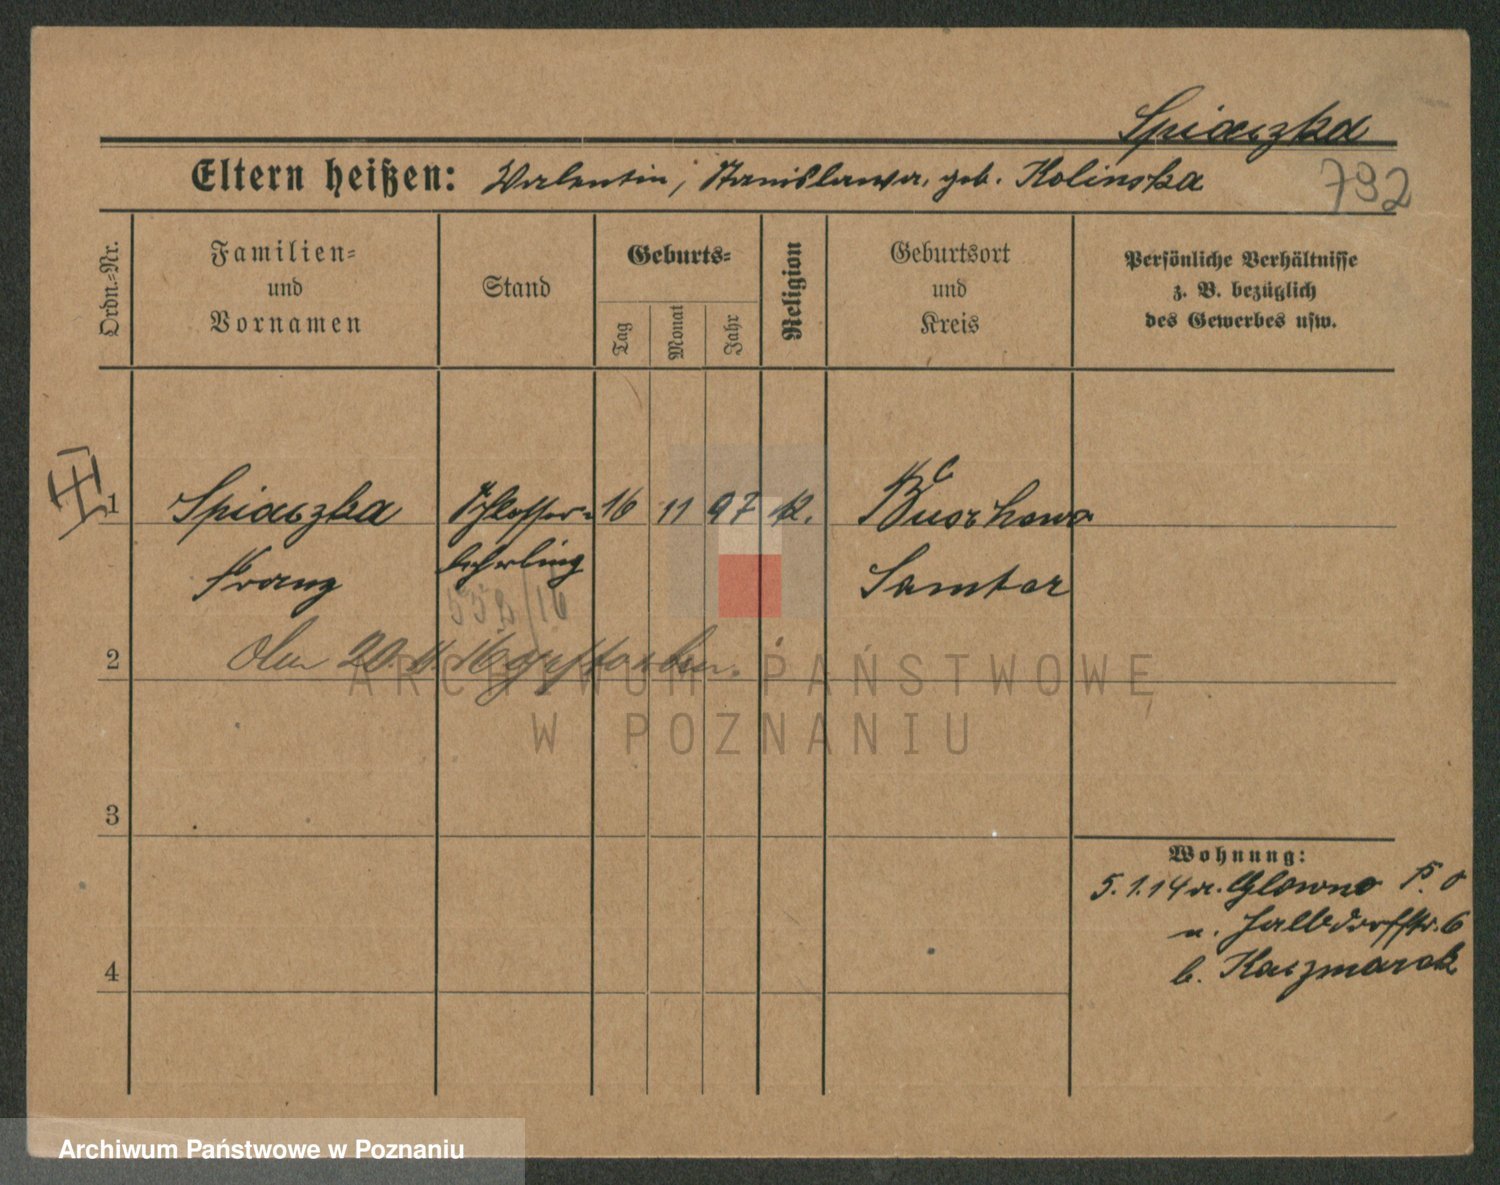 Spiaczka
Eltern heißen: Valentin, Stanislawa, geb. Kolinska
792
Ordn.-Nr.
Familien-
und
Vornamen
Stand
Geburts-
Tag
Monat
Jahr
Religion
Geburtsort
und
Kreis
Persönliche Verhältnisse
z. B. bezüglich
des Gewerbes usw.
1 Spiaczka Schlosser- 16 11 97 k.
Franz lehrling Samter
558/16
2 20.11.16 gestorben.
ARCHIWUM PAŃSTWOWE
W POZNANIU
3
Wohnung:
5.1.14 a. Glowno P. O
b. Kaczmarek
4
Archiwum Państwowe w Poznaniu